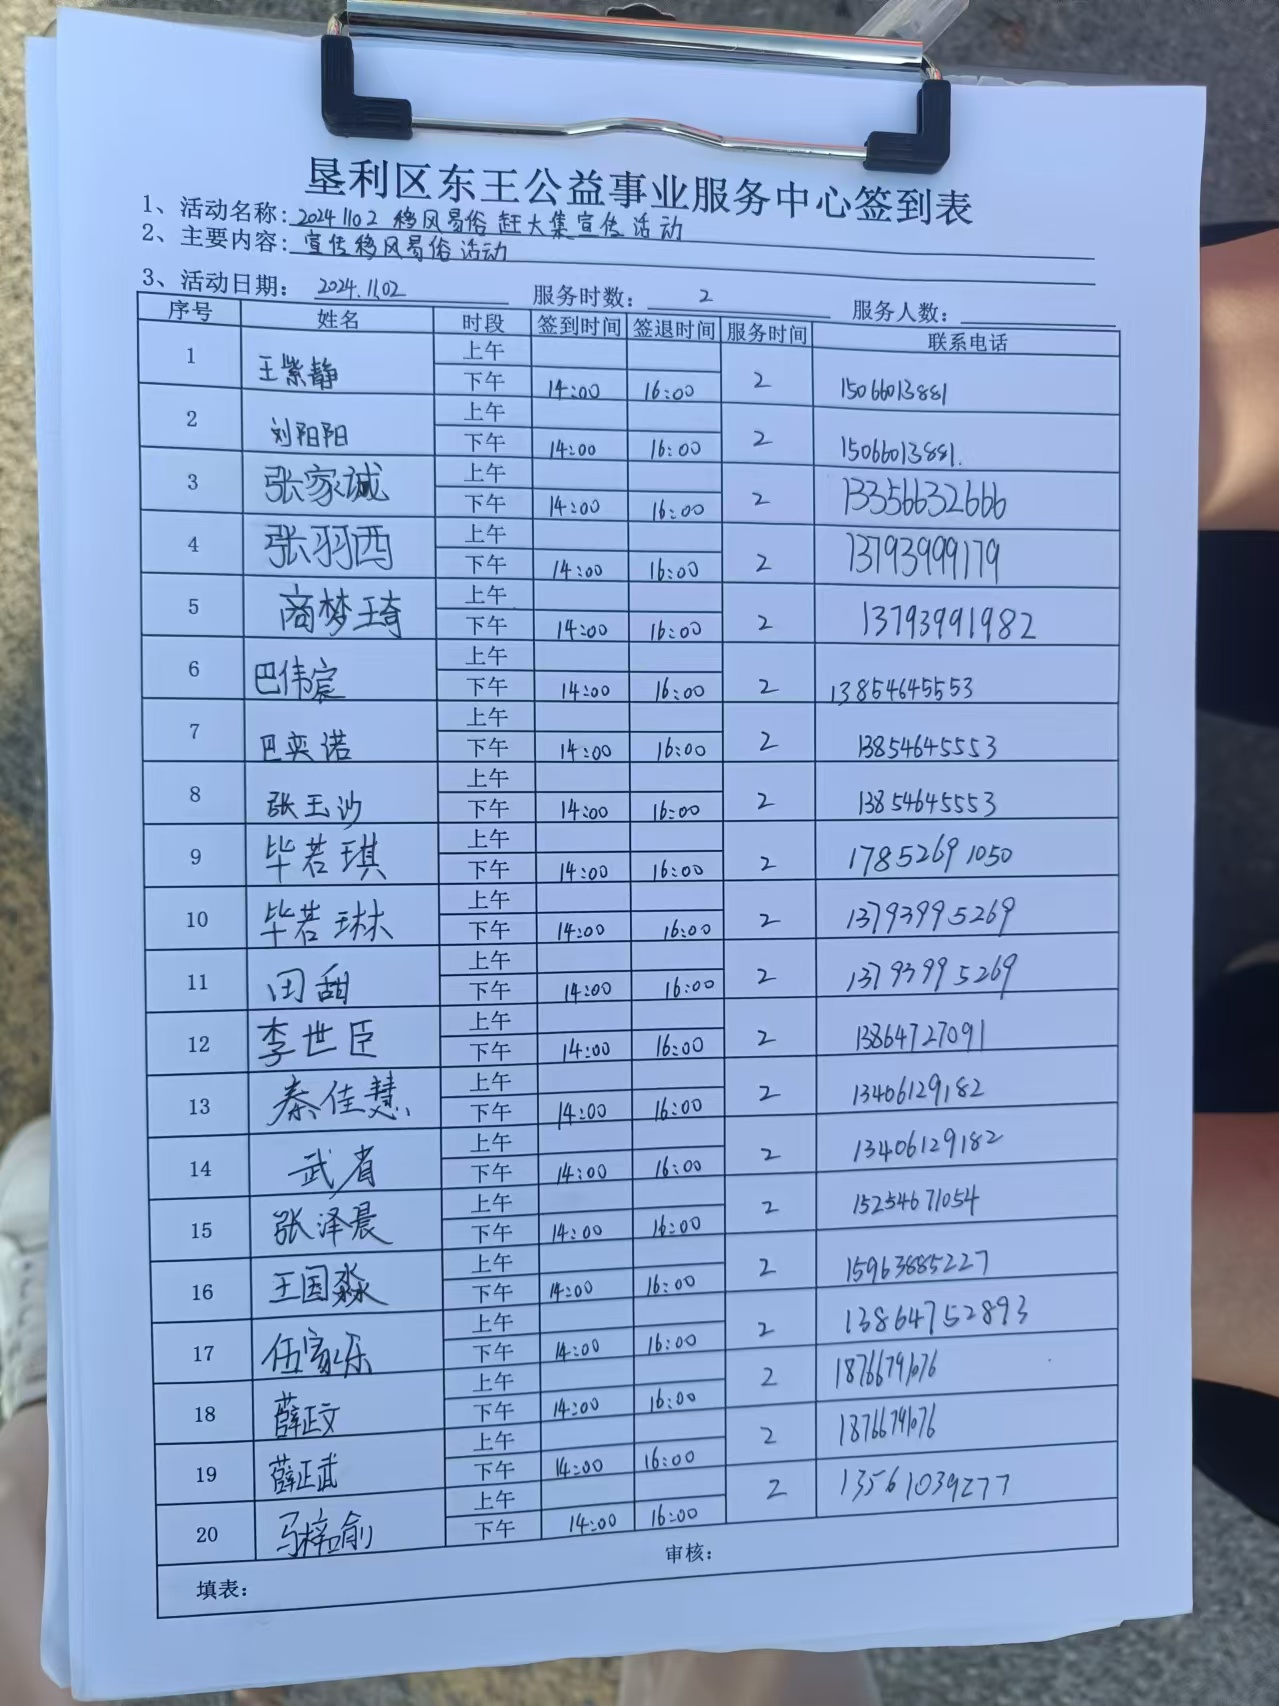 垦利区东王公益事业服务中心签到表
1、活动名称: 20241102 移风易俗赶大集宣传活动
2、主要内容: 宣传移风易俗活动
3、活动日期: 2024.11.02 服务时数: 2 服务人数:
序号 姓名 时段 签到时间 签退时间 服务时间 联系电话
1 王紫静 上午 下午 14:00 16:00 2 15066013881
2 刘阳阳 上午 下午 14:00 16:00 2 15066013881.
3 张家诚 上午 下午 14:00 16:00 2 13356632666
4 张羽西 上午 下午 14:00 16:00 2 13793999179
5 商梦琦 上午 下午 14:00 16:00 2 13793991982
6 巴伟宸 上午 下午 14:00 16:00 2 13854645553
7 巴奕诺 上午 下午 14:00 16:00 2 13854645553
8 张玉沙 上午 下午 14:00 16:00 2 13854645553
9 毕若琪 上午 下午 14:00 16:00 2 17852691050
10 毕若琳 上午 下午 14:00 16:00 2 13793995269
11 田甜 上午 下午 14:00 16:00 2 13793995269
12 李世臣 上午 下午 14:00 16:00 2 13864727091
13 秦佳慧 上午 下午 14:00 16:00 2 13406129182
14 武省 上午 下午 14:00 16:00 2 13406129182
15 张泽晨 上午 下午 14:00 16:00 2 15254671054
16 王国淼 上午 下午 14:00 16:00 2 15963885227
17 伍家乐 上午 下午 14:00 16:00 2 13864752893
18 薛正文 上午 下午 14:00 16:00 2 18766791076
19 薛正武 上午 下午 14:00 16:00 2 18766791076
20 马梓喻 上午 下午 14:00 16:00 2 13561039277
填表: 审核: